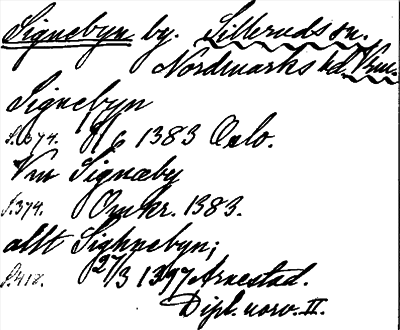 Signebyn by. Silleruds sn.
Nordmarks hd. Vrm.
Signebyn
S.374. 8/6 1383 Oslo.
Vm Signæby
S.374. Omkr. 1383.
allt Sighnebyn;
S.418. 27/3 1397 Arnestad.
Dipl. norv. II.